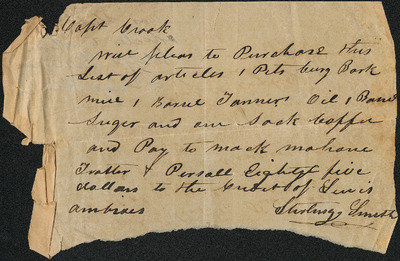 Capt Crook
will pleas to Purchase this
List of articles 1 Pitsburg Bark
mill 1 Barrel Tanners Oil 1 Barrel
Suger and one Sack Coffee
and Pay to mack mahone
Trotter & Persall Eighty five
dollars to the Credit of Lewis
ambixes
Sterling Smith